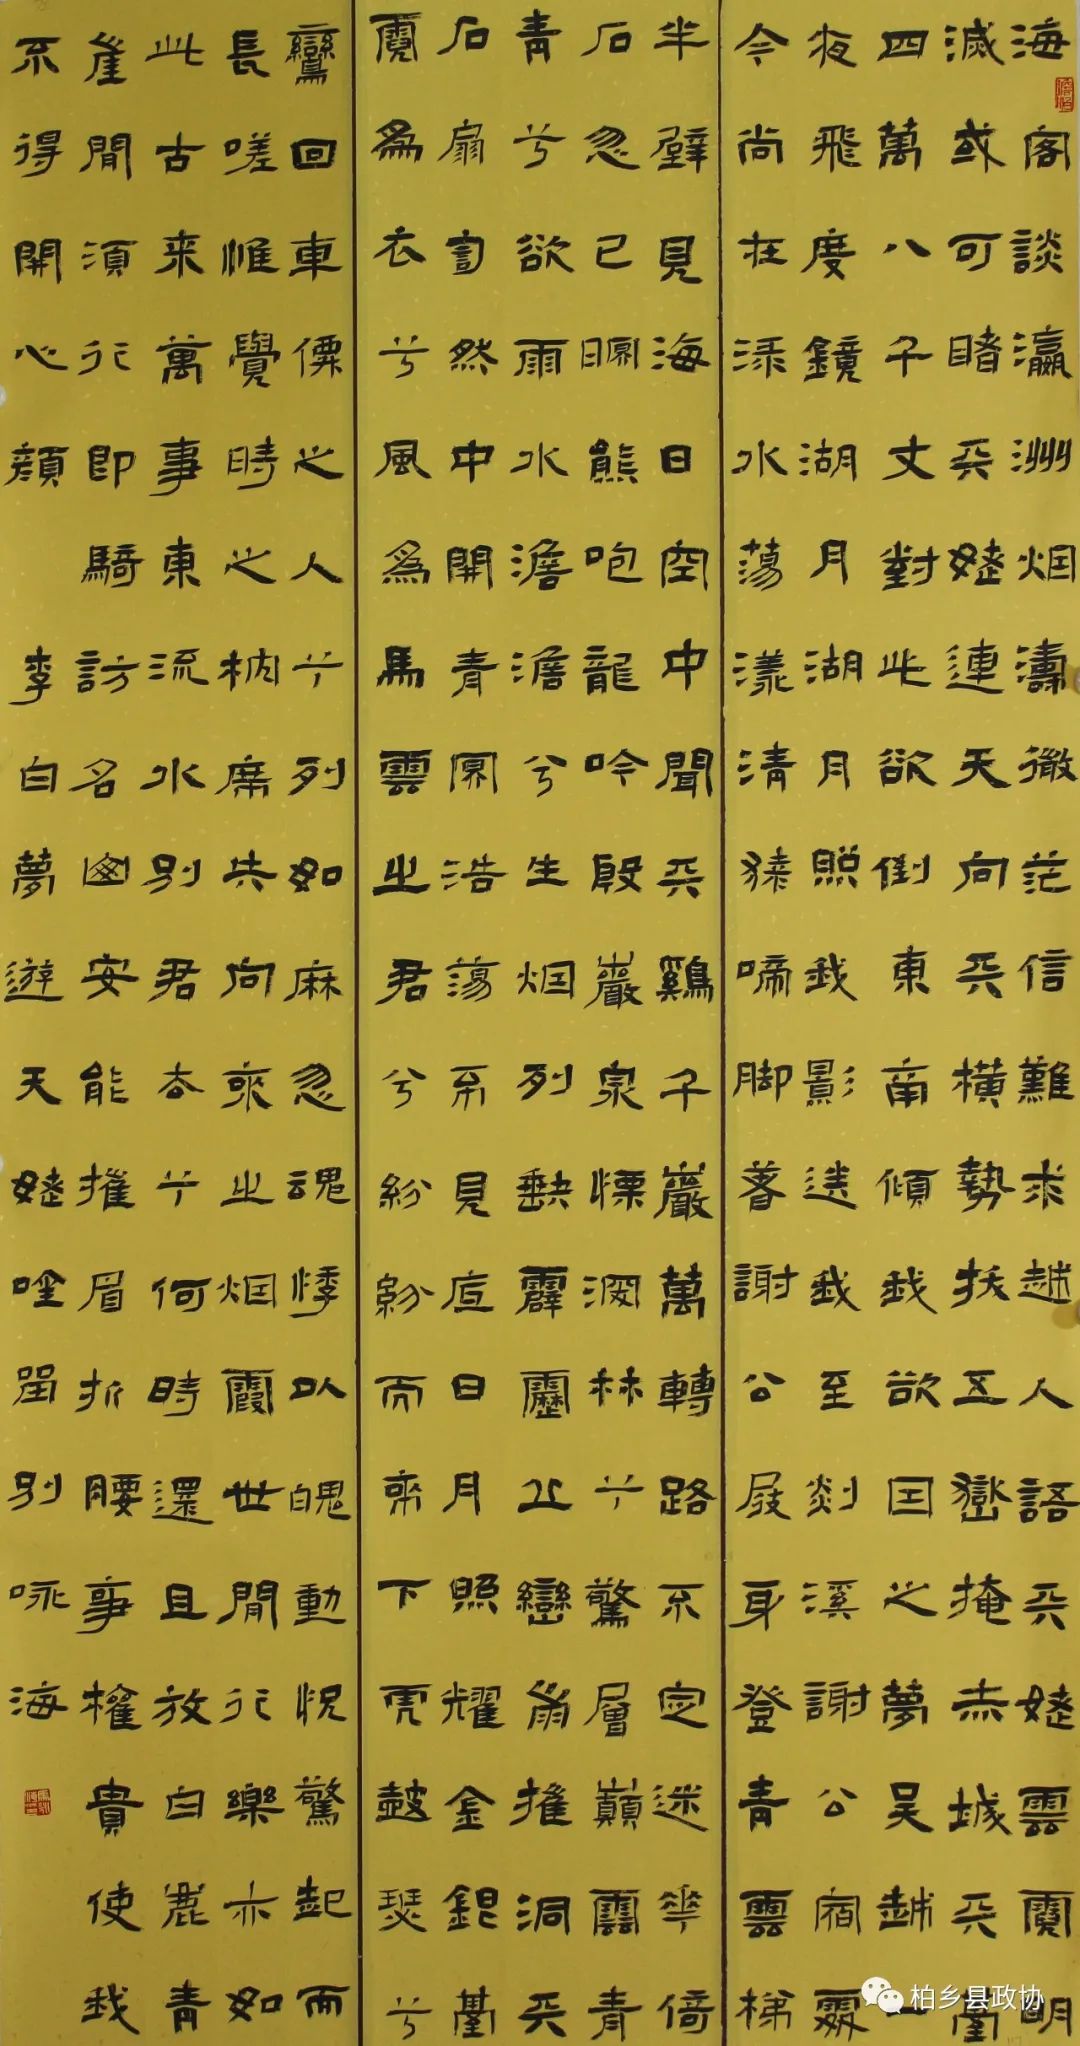 海客談瀛洲烟濤微茫信難求越人語天姥雲霓明
滅或可睹天姥連天向天橫勢拔五嶽掩赤城天臺
四萬八千丈對此欲倒東南傾我欲因之夢吳越一
夜飛度鏡湖月湖月照我影送我至剡溪謝公宿處
今尚在淥水蕩漾清猿啼腳著謝公屐身登青雲梯
半壁見海日空中聞天雞千巖萬轉路不定迷花倚
石忽已暝熊咆龍吟殷巖泉慄深林兮驚層巔雲青
青兮欲雨水澹澹兮生烟列缺霹靂丘巒崩摧洞天
石扇訇然中開青冥浩蕩不見底日月照耀金銀臺
霓爲衣兮風爲馬雲之君兮紛紛而來下虎鼓瑟兮
鸞回車僊之人兮列如麻忽魂悸以魄動怳驚起而
長嗟惟覺時之枕席失向來之烟霞世間行樂亦如
此古來萬事東流水別君去兮何時還且放白鹿青
崖間須行即騎訪名山安能摧眉折腰事權貴使我
不得開心顏 李白夢遊天姥吟留別 咏海
柏乡县政协